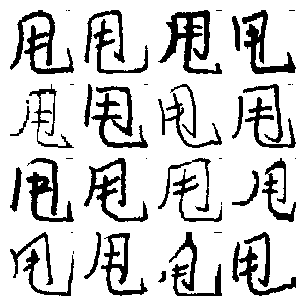 甩甩甩甩
甩甩甩甩
甩甩甩甩
甩甩甩甩